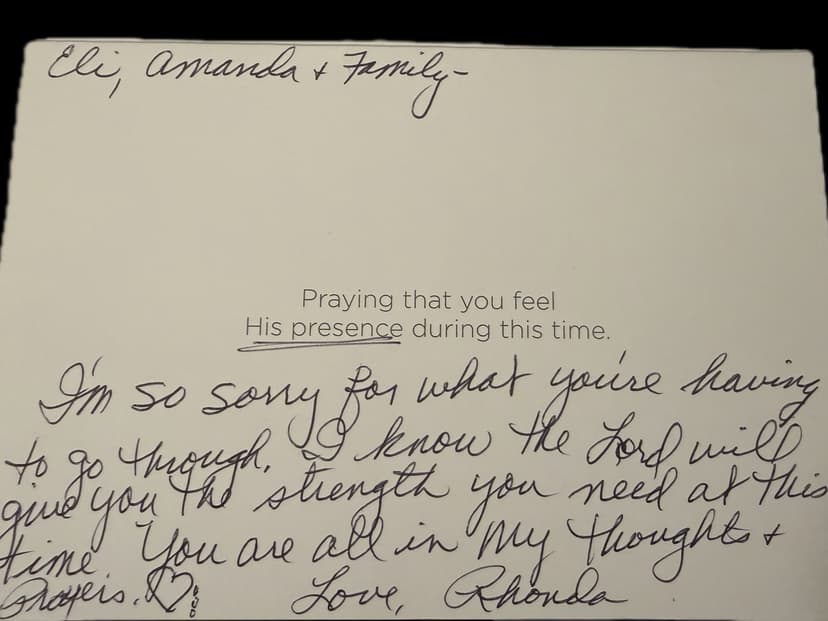 Eli, Amanda + Family-
Praying that you feel
His presence during this time.
I'm so sorry for what you're having
to go through. I know the Lord will
give you the strength you need at this
time. You are all in my thoughts +
Prayers. ♡
Love, Rhonda